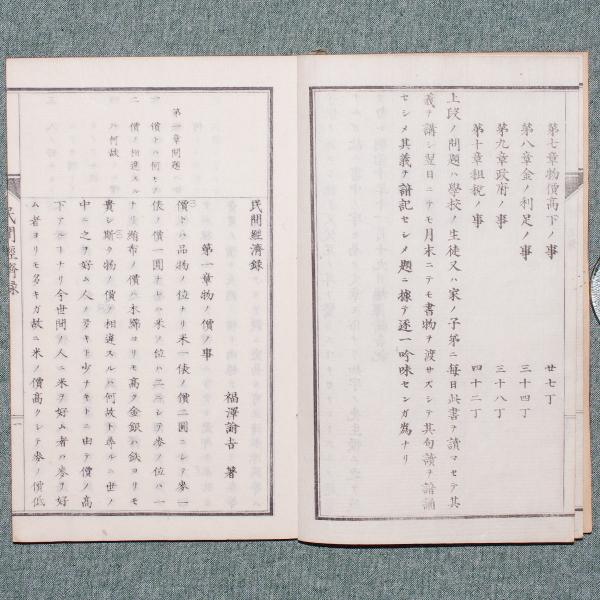 第七章物價高下ノ事 廿七丁
第八章金ノ利足ノ事 三十四丁
第九章政府ノ事 三十八丁
第十章租税ノ事 四十二丁
上段ノ問題ハ學校ノ生徒又ハ家ノ子弟ニ毎日此書ヲ讀マセテ其
義ヲ講シ翌日ニテモ月末ニテモ書物ヲ渡サズシテ其句讀ヲ諳誦
セシメ其義ヲ諳記セシメ題ニ據テ逐一吟味センガ爲ナリ
民間經濟録
福澤諭吉 著
第一章物ノ價ノ事
第一章問題
一 價トハ何ゾ
二 價ノ相違スル
ハ何故
價トハ品物ノ位ナリ米一俵ノ價二圓ニシテ麥一
俵ノ價一圓ナレハ米ノ位ハ二ニシテ麥ノ位ハ一
ナリ絹布ノ價ハ木綿ヨリモ高ク金銀ハ鉄ヨリモ
貴シ斯ク物ノ價ノ相違スルハ何故ト尋ルニ世ノ
中ニ之ヲ好ム人ノ多キト少ナキトニ由テ價ノ高
下アルコトナリ今世間ノ人ニ米ヲ好ム者ハ麥ヲ好
ム者ヨリモ多キガ故ニ米ノ價高クシテ麥ノ價低
民間經濟録